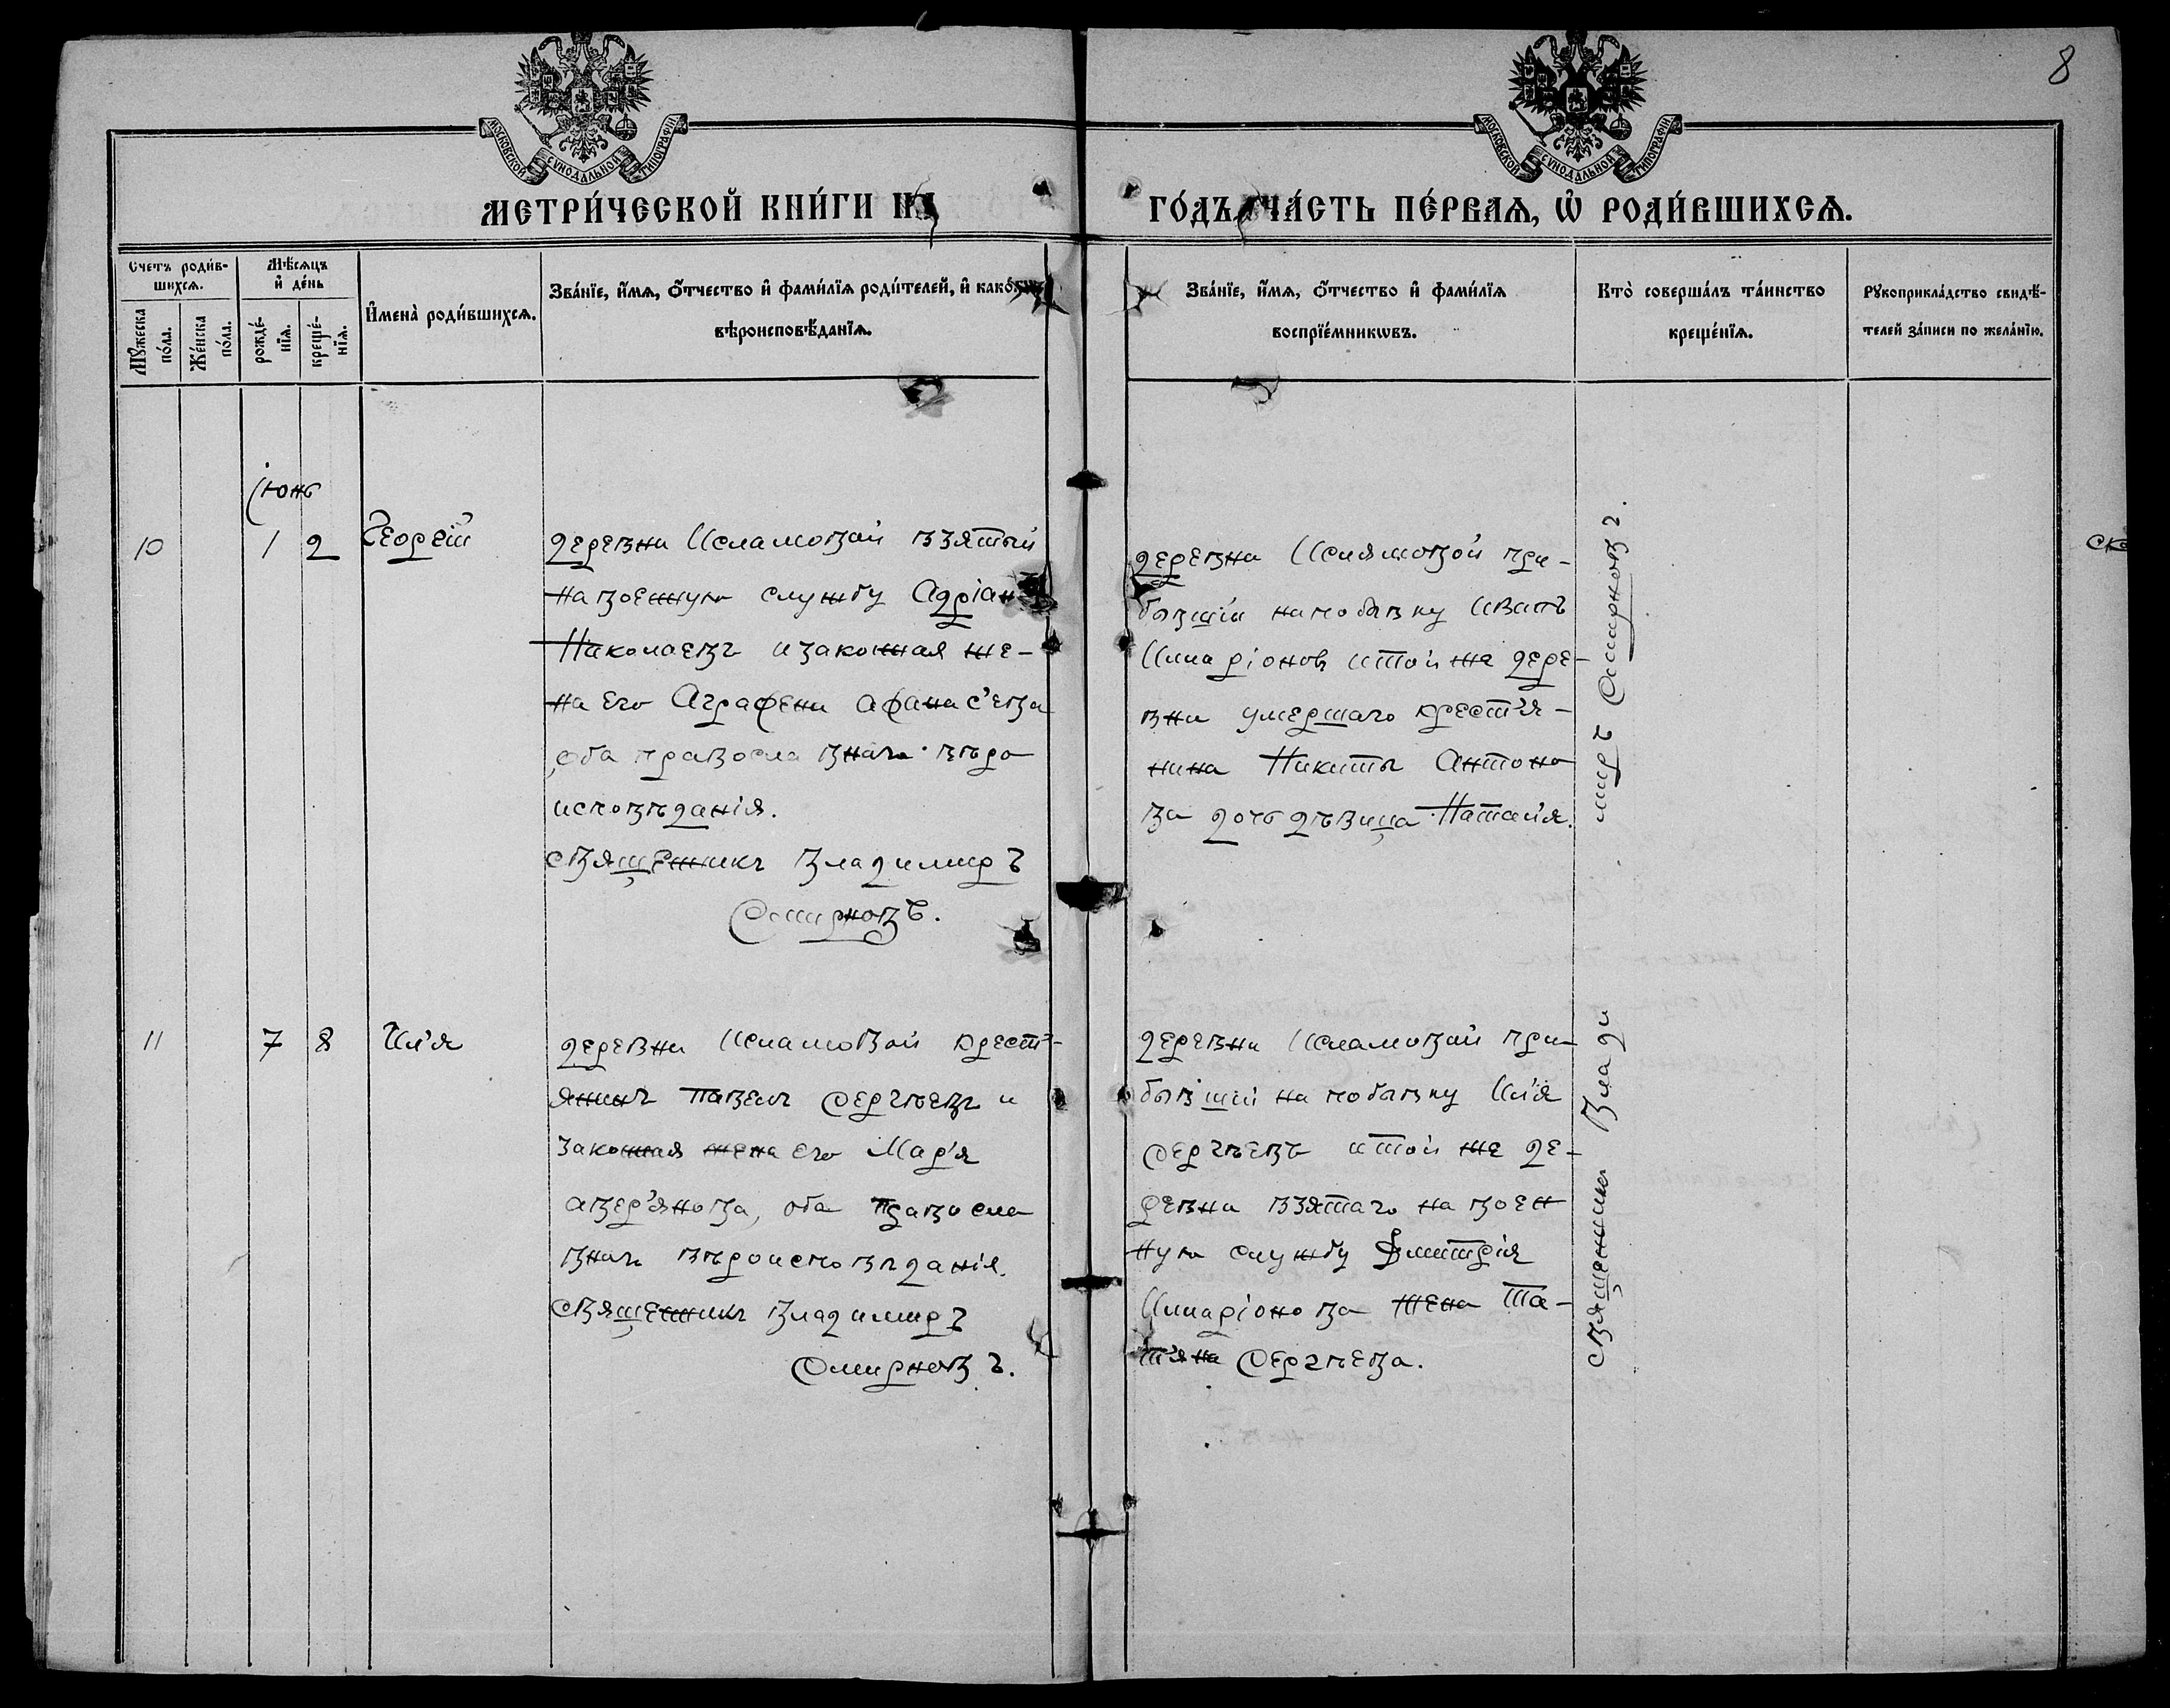 8
МОСКОВСКОЙ СУНОДАЛЬНОЙ ТИПОГРАФІИ
МОСКОВСКОЙ СУНОДАЛЬНОЙ ТИПОГРАФІИ
МЕТРИ́ЧЕСКОЙ КНИ́ГИ НА
ГО́ДЪ, ЧА́СТЬ ПЕ́РВАѦ, Ѡ҆ РОДИ́ВШИХСѦ.
Счетъ роди́в-
шихсѧ.
Мѹ́жеска
по́ла.
Же́нска
по́ла.
Мѣ́сѧцъ
и҆ де́нь
рожде́-
нїѧ.
креще́-
нїѧ.
И҆мена̀ роди́вшихсѧ.
Зва́нїе, и҆́мѧ, ѻ҆́тчество и҆ фами́лїѧ роди́телей, и҆ како́гѡ
вѣроисповѣ́данїѧ.
Зва́нїе, и҆́мѧ, ѻ҆́тчество и҆ фами́лїѧ
воспрїе́мникѡвъ.
Кто̀ соверша́лъ та́инство
креще́нїѧ.
Рѹкоприкла́дство свидѣ́-
телей за́писи по жела́нїю.
Іюнь
10
1
2
Георгій
деревни Исламовой взятый
на военную службу Адріанъ
Николаевъ и законная же-
на его Аграфена Афанасьева
оба православнаго вѣро
исповѣданія.
Священникъ Владимиръ
Смирновъ.
деревни Ислямовой при-
бывшій на побывку Иванъ
Илларіоновъ и той же дере-
вни умершаго крестья-
нина Никиты Антоно
ва дочь дѣвица Наталія.
11
7
8
Илья
деревни Исламовой кресть-
янинъ Павелъ Сергѣевъ и
законная жена его Марья
Аверьянова, оба правосла
внаго вѣроисповѣданія.
Священникъ Владимиръ
Смирновъ.
деревни Исламовой при-
бывшій на побывку Илья
Сергѣевъ и той же де-
ревни взятаго на воен
ную службу Дмитрія
Илларіонова жена Та-
тьяна Сергѣева.
Священникъ Влади миръ Смирновъ.
ск